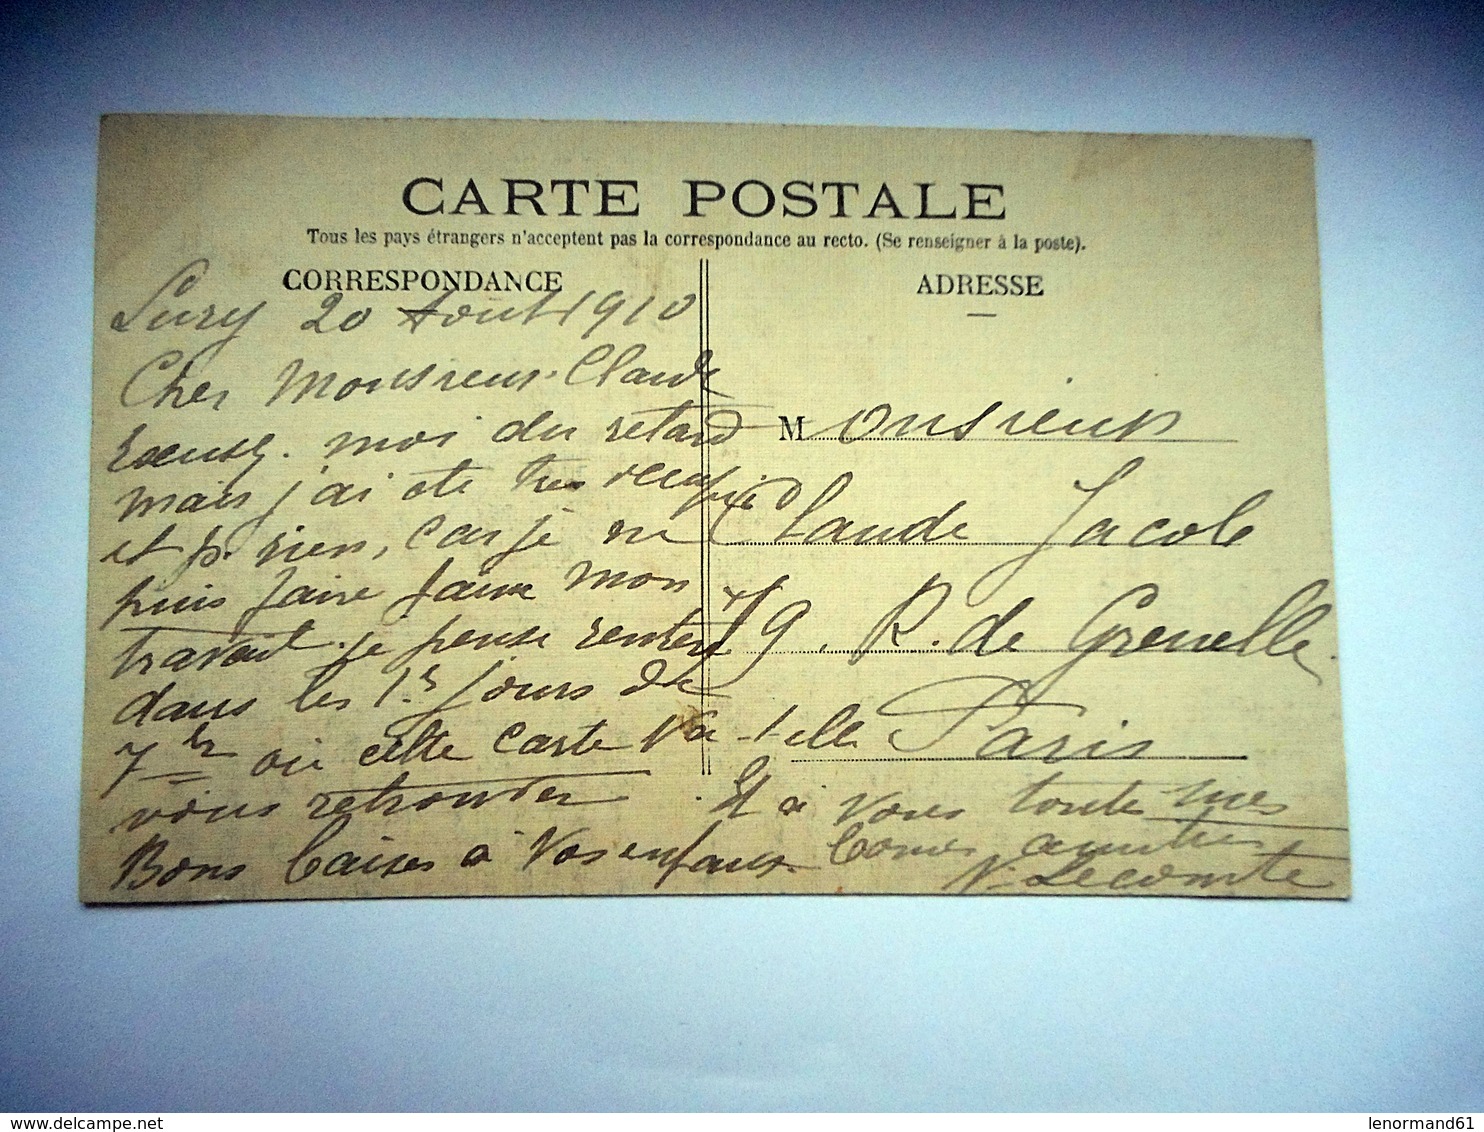 CARTE POSTALE
Tous les pays étrangers n'acceptent pas la correspondance au recto. (Se renseigner à la poste).
CORRESPONDANCE
ADRESSE
Lury 20 Aout 1910
Cher Monsieur Claude
Excusez moi du retard
mais j'ai été très occupé
et p. rien, car je ne
puis faire faire mon
travail. je pense rentrer
dans les 1rs jours de
7bre où cette carte va-t-elle
vous retrouver
Bons baises à vos enfants.
Et à vous toute mes
bonnes amitiés
V. Lecomte
Monsieur
Claude Jacob
79. R. de Grenelle.
Paris
delcampe.net
lenormand61